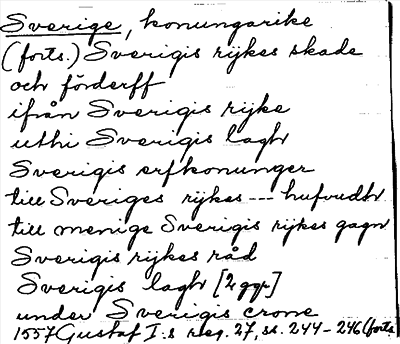 Sverige, konungarike
(forts.) Sverigis rijkes skade
och förderff
ifrån Sverigis rijke
uthi Sverigis lagh
Sverigis erfkonunger
till Sveriges rijkes --- hufvudh
till menige Sverigis rijkes gagn
Sverigis rijkes råd
Sverigis lagh [2 ggr]
under Sverigis crone
1557 Gustaf I:s reg. 27, ss. 244-246 (forts.